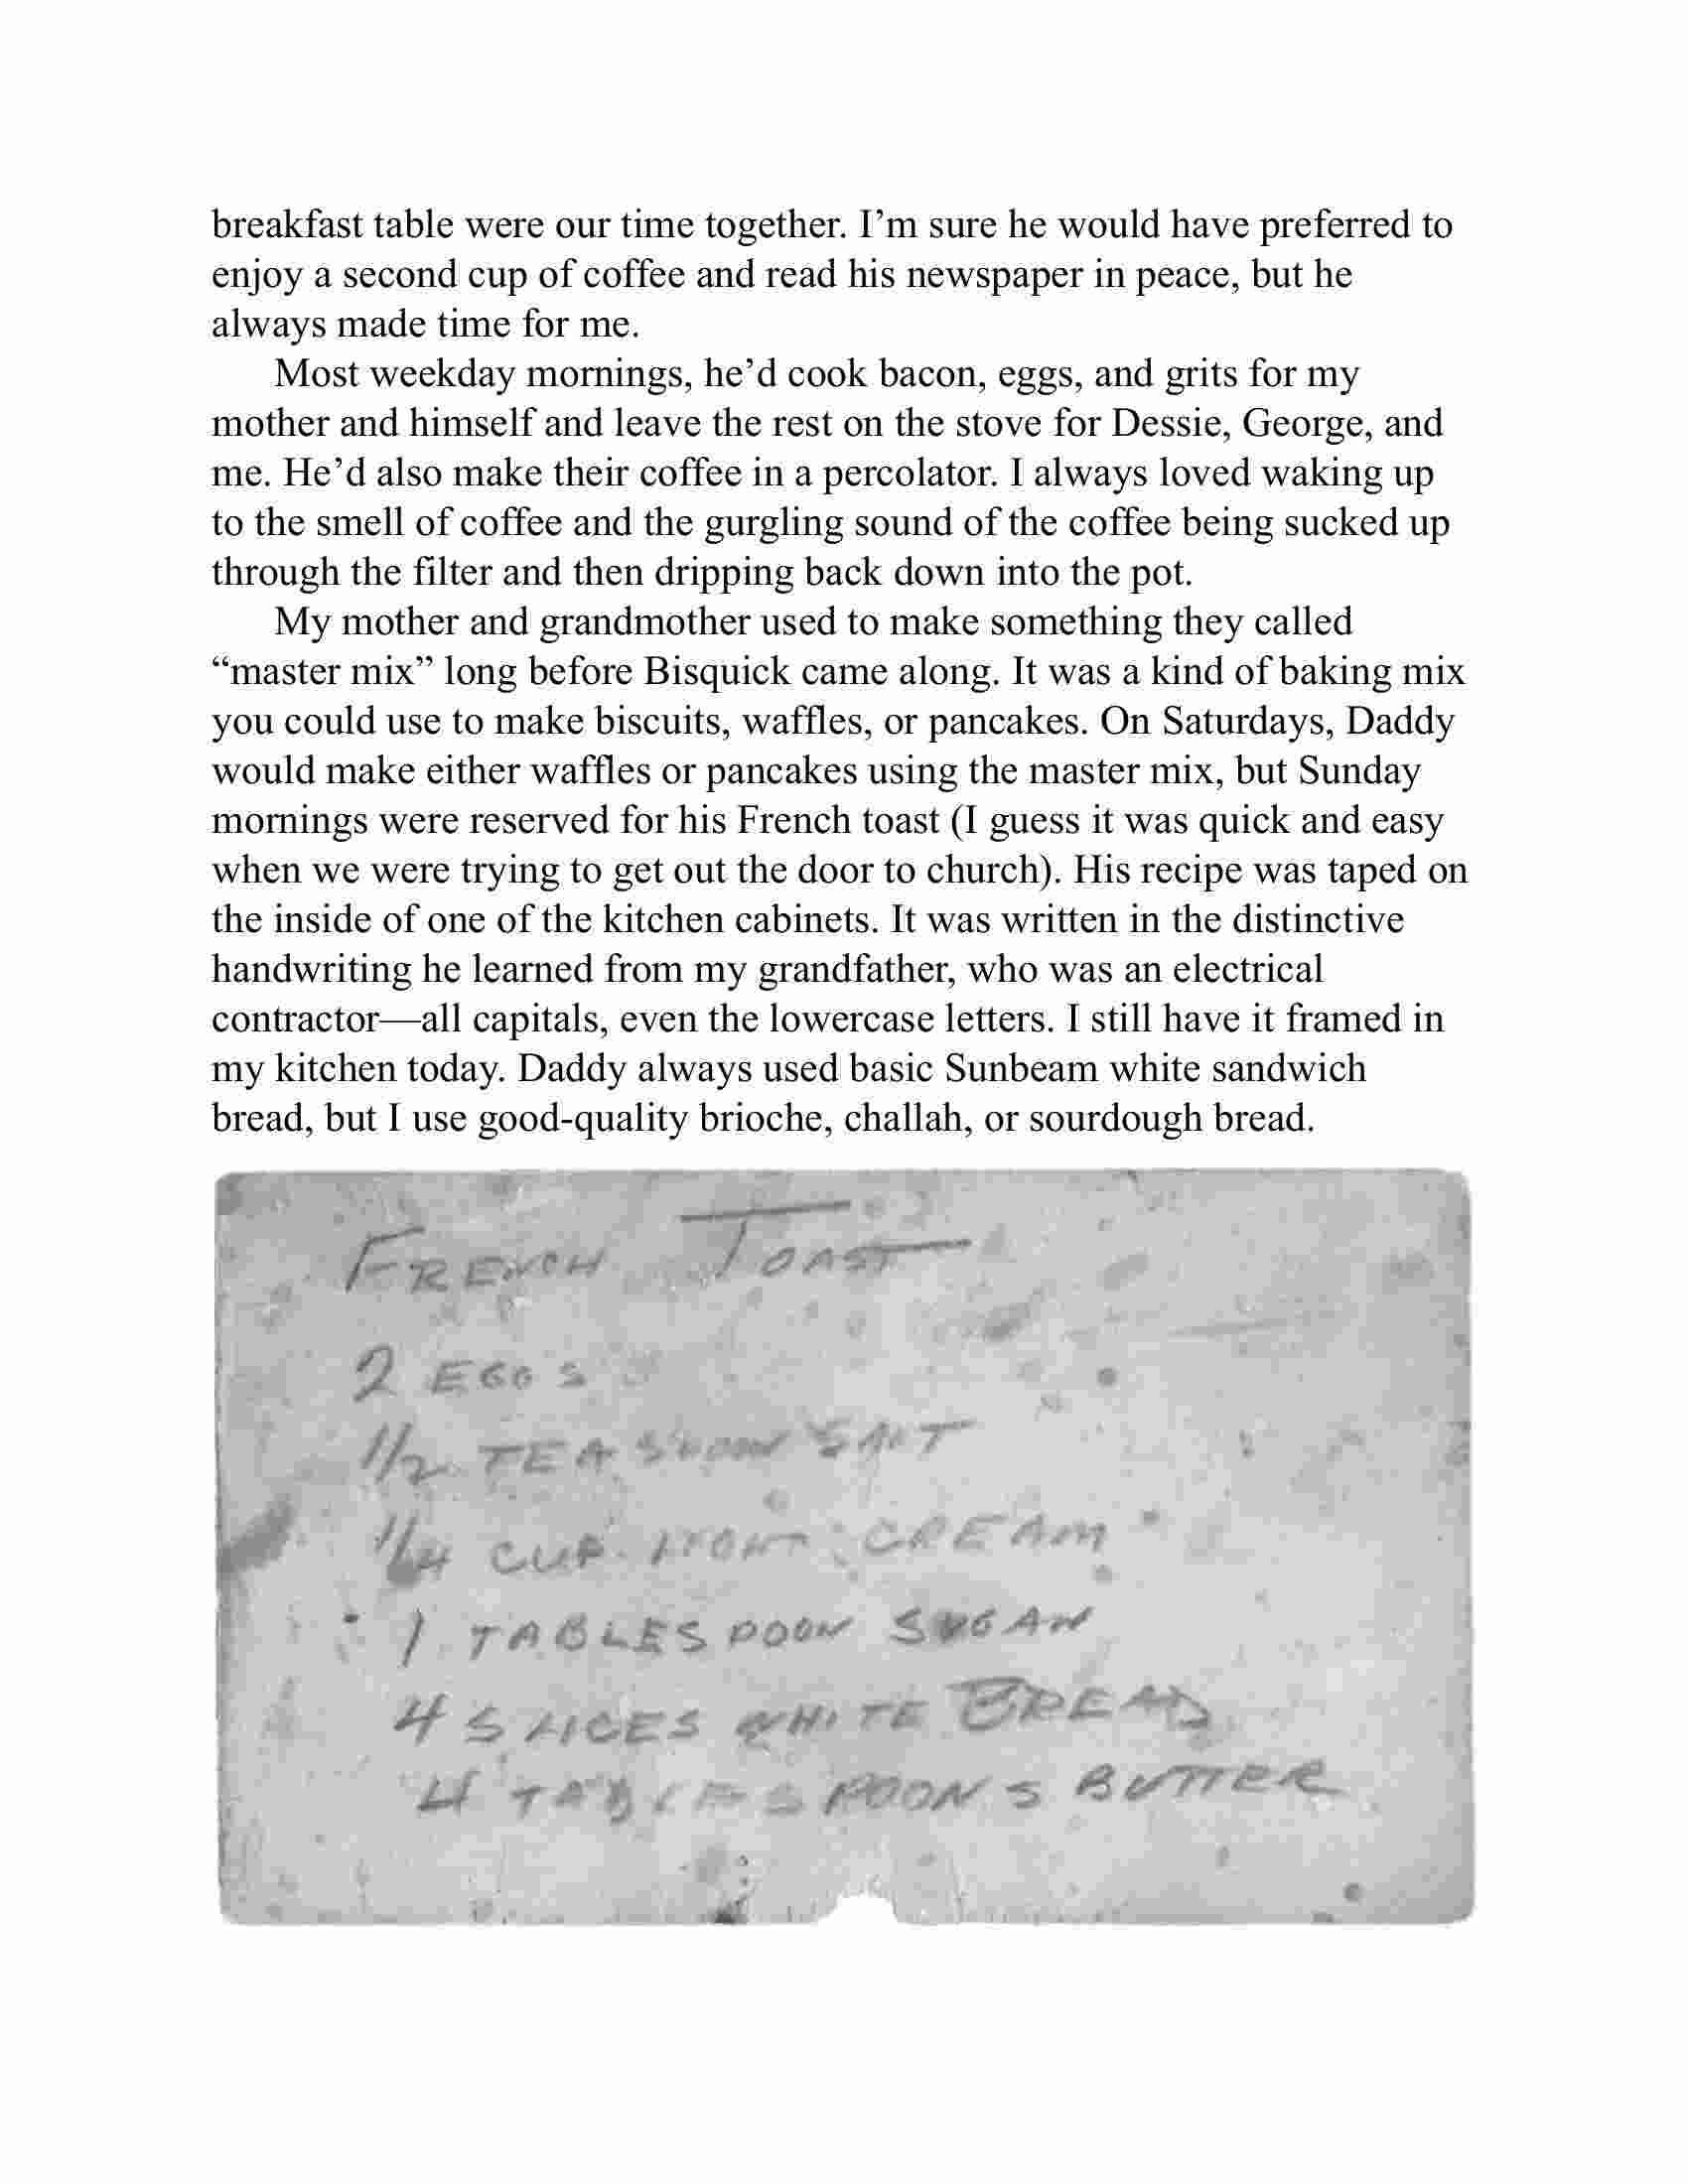 breakfast table were our time together. I’m sure he would have preferred to
enjoy a second cup of coffee and read his newspaper in peace, but he
always made time for me.
Most weekday mornings, he’d cook bacon, eggs, and grits for my
mother and himself and leave the rest on the stove for Dessie, George, and
me. He’d also make their coffee in a percolator. I always loved waking up
to the smell of coffee and the gurgling sound of the coffee being sucked up
through the filter and then dripping back down into the pot.
My mother and grandmother used to make something they called
“master mix” long before Bisquick came along. It was a kind of baking mix
you could use to make biscuits, waffles, or pancakes. On Saturdays, Daddy
would make either waffles or pancakes using the master mix, but Sunday
mornings were reserved for his French toast (I guess it was quick and easy
when we were trying to get out the door to church). His recipe was taped on
the inside of one of the kitchen cabinets. It was written in the distinctive
handwriting he learned from my grandfather, who was an electrical
contractor—all capitals, even the lowercase letters. I still have it framed in
my kitchen today. Daddy always used basic Sunbeam white sandwich
bread, but I use good-quality brioche, challah, or sourdough bread.
FRENCH TOAST
2 EGGS
1/2 TEASPOON SALT
1/4 CUP CREAM
1 TABLESPOON SUGAR
4 SLICES WHITE BREAD
4 TABLESPOONS BUTTER